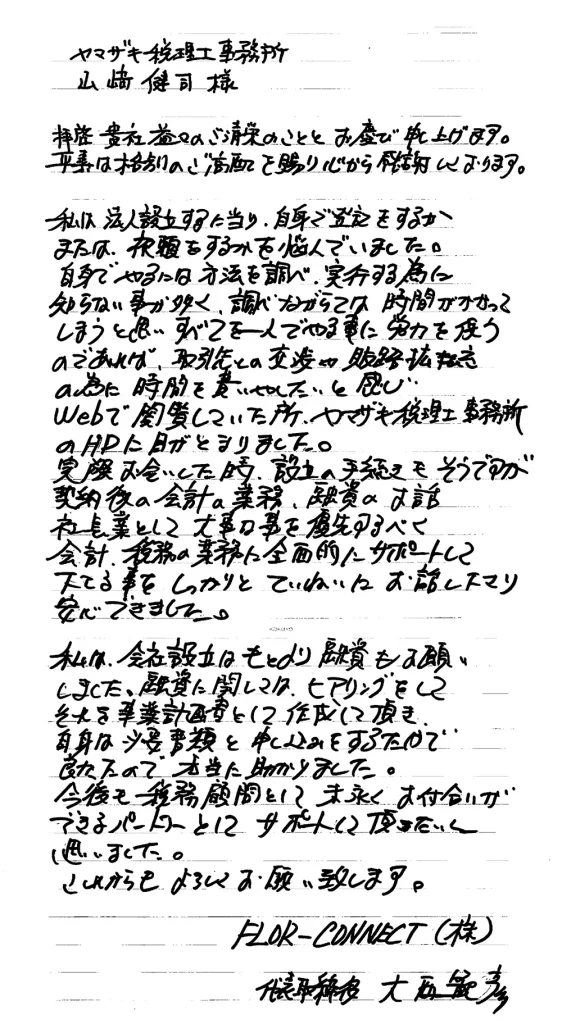 ヤマザキ税理士事務所
山﨑 健司 様
拝啓 貴社益々のご清栄のこととお慶び申し上げます。
平素は格別のご高配を賜り心から感謝しております。
私は法人設立するに当り、自身で登記をするか
または、依頼をするかを悩んでいました。
自身でやるには方法を調べ、実行する為に
知らない事が多く、調べながらでは時間がかかって
しまうと思い すべてを一人でやる事に労力を使う
のであれば、取引先との交渉や販路拡大
の為に時間を費いやしたいと感じ
Webで閲覧していた所、ヤマザキ税理士事務所
のHPに目がとまりました。
実際お会いした時、設立の手続きもそうですが
契約後の会計の業務、融資のお話
社長業として大事な事を優先するべく
会計、税務の業務に全面的にサポートして
下さる事をしっかりとていねいにお話し下さり
安心できました。
私は、会社設立はもとより融資もお願い
しました。融資に関しては、ヒアリングをして
それを事業計画書として作成して頂き、
自身は必要書類と申し込みをするだけで
良かったので本当に助かりました。
今後も税務顧問として末永くお付合いが
できるパートナーとしてサポートして頂きたいと
思いました。
これからもよろしくお願い致します。
FLOR-CONNECT (株)
代表取締役 大西